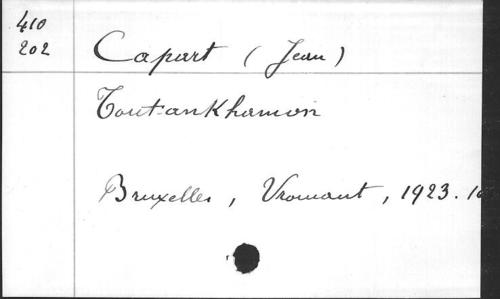 410
202
Capart (Jean)
Tout-ankhamon
Bruxelles, Vromant, 1923.